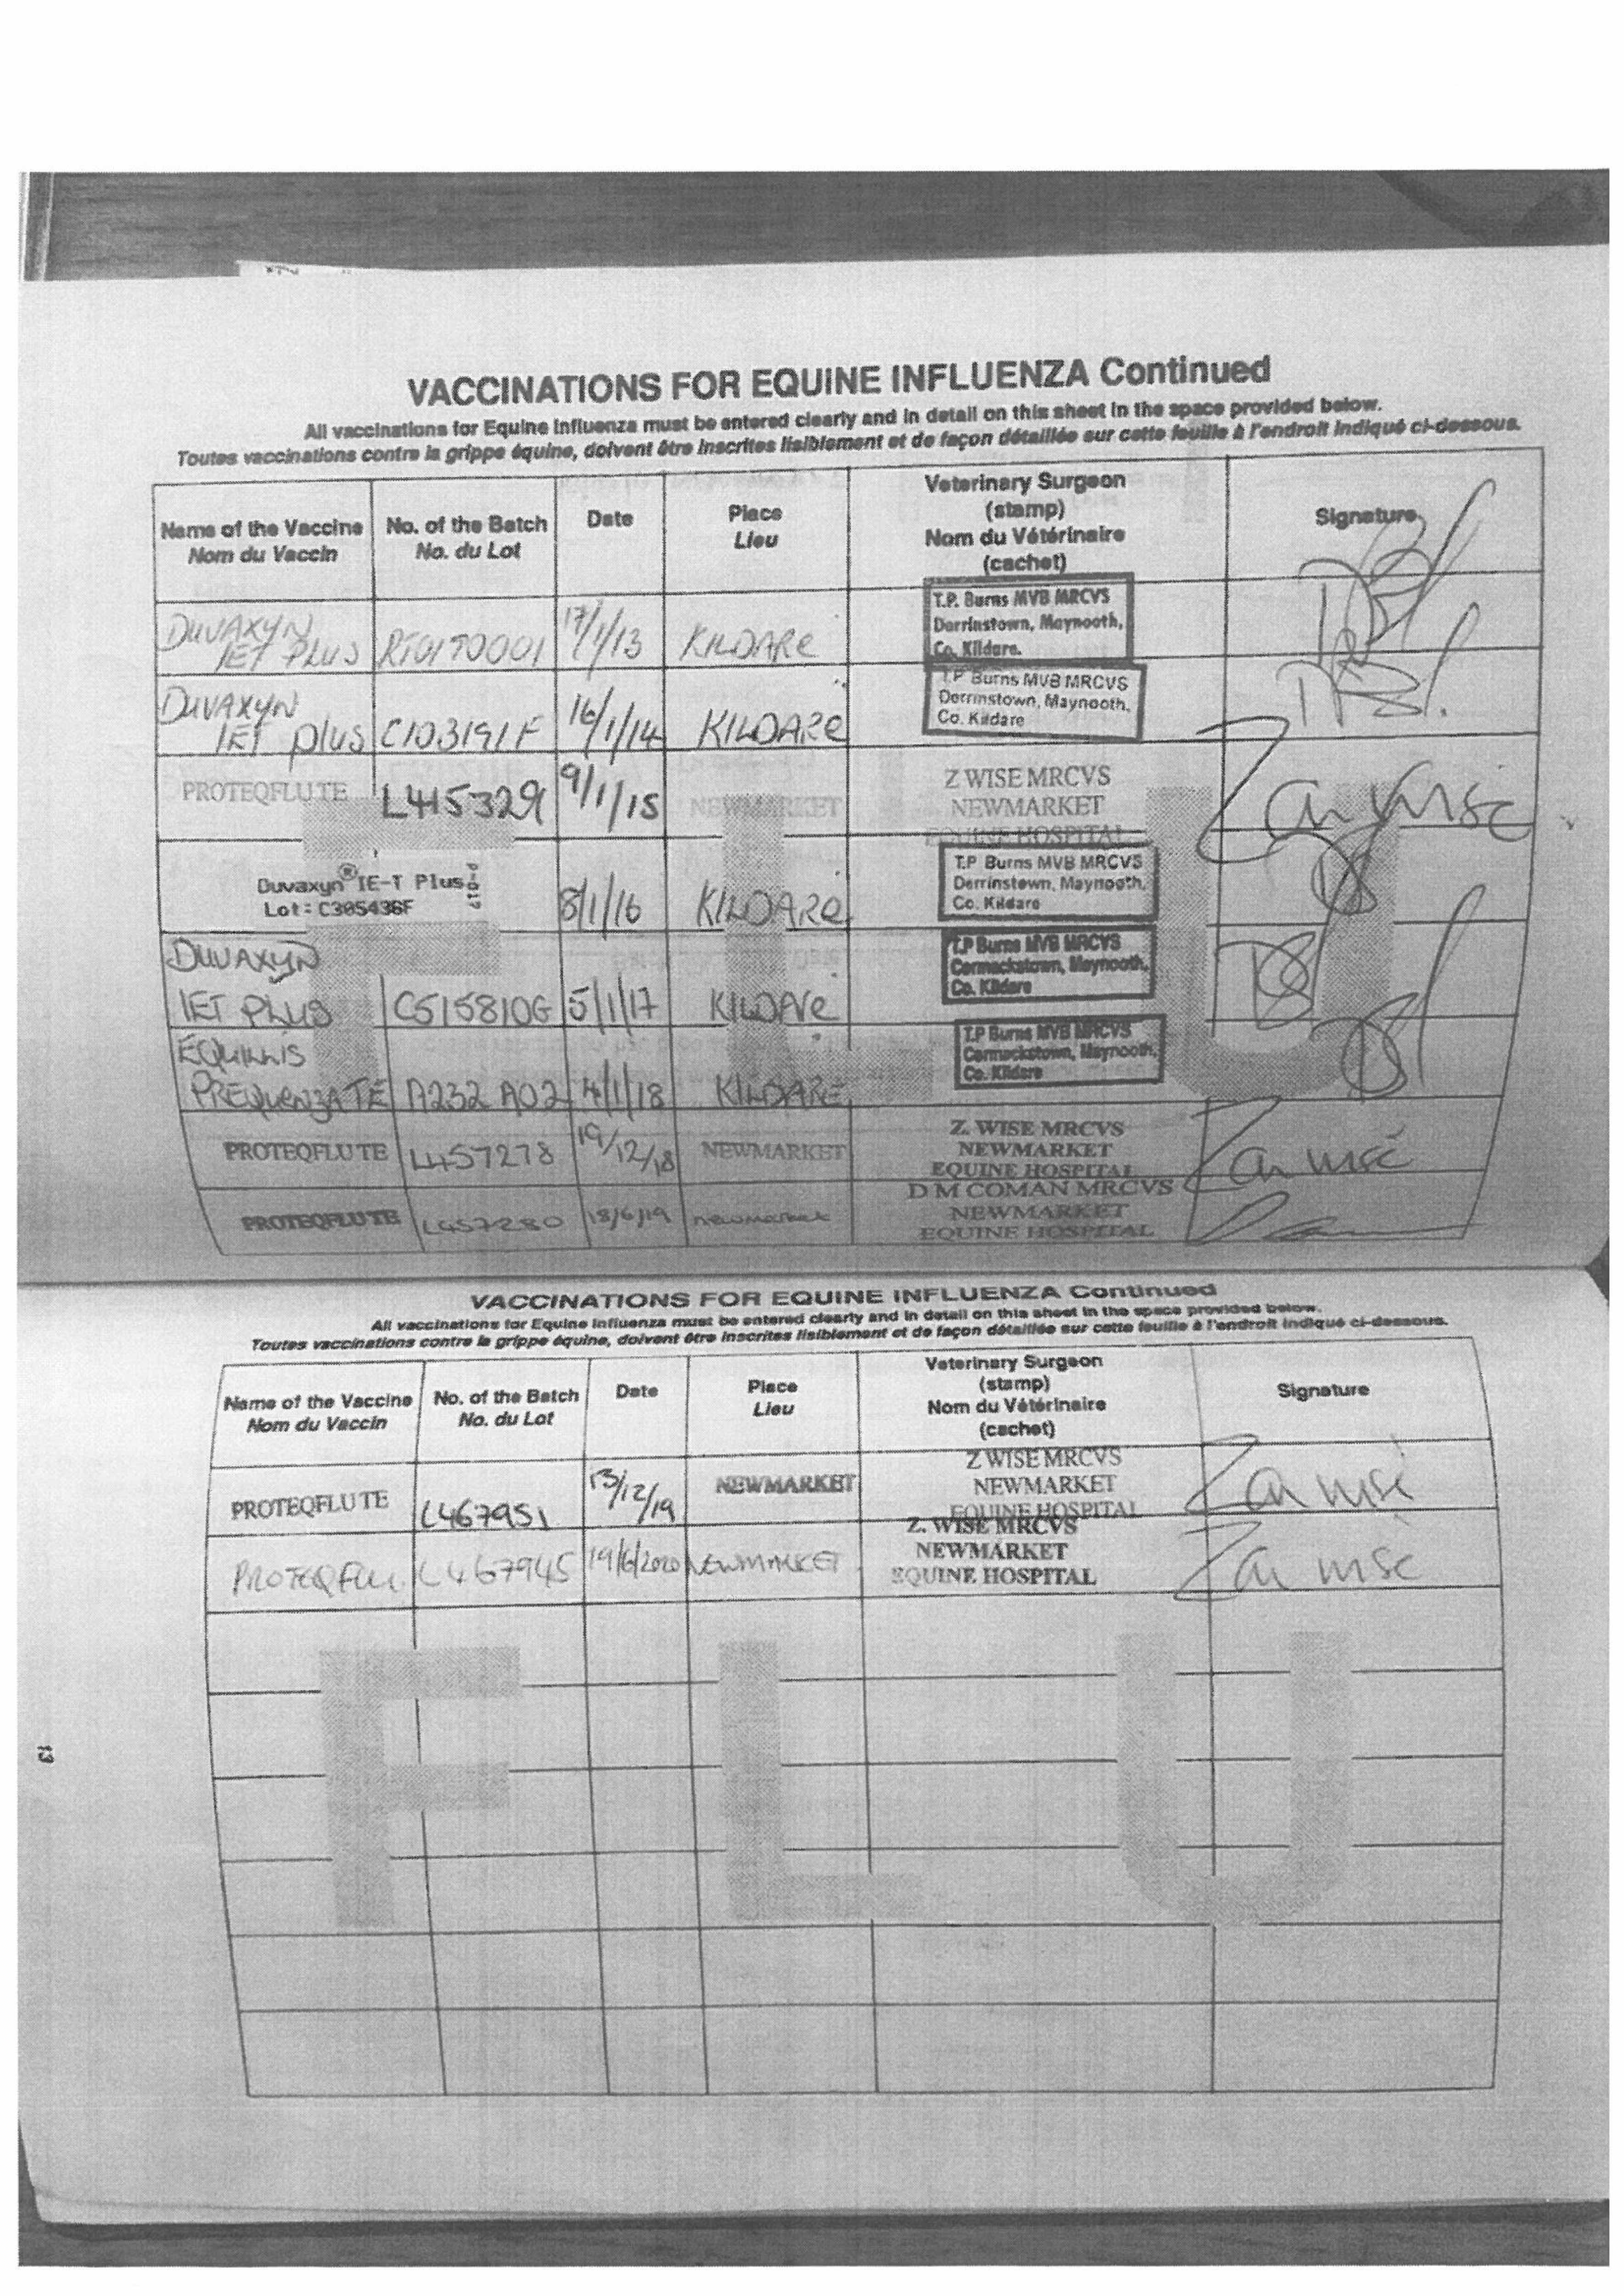 VACCINATIONS FOR EQUINE INFLUENZA Continued
All vaccinations for Equine Influenza must be entered clearly and in detail on this sheet in the space provided below.
Toutes vaccinations contre la grippe équine, doivent être inscrites lisiblement et de façon détaillée sur cette feuille à l'endroit indiqué ci-dessous.
Name of the Vaccine
Nom du Vaccin
No. of the Batch
No. du Lot
Date
Place
Lieu
Veterinary Surgeon
(stamp)
Nom du Vétérinaire
(cachet)
Signature
DUVAXYN
IET PLUS
17/1/13
KILDARE
T.P. Burns MVB MRCVS
Derrinstown, Maynooth,
Co. Kildare.
DUVAXYN
IET plus
C103191F
16/1/14
KILDARE
T.P Burns MVB MRCVS
Derrinstown, Maynooth.
Co. Kildare
PROTEQFLUTE
L415329
9/1/15
NEWMARKET
Z WISE MRCVS
NEWMARKET
EQUINE HOSPITAL
Duvaxyn® IE-T Plus
Lot: C305436F
8/1/16
KILDARE
T.P Burns MVB MRCVS
Derrinstown, Maynooth.
Co. Kildare
DUVAXYN
IET PLUS
C515810G
5/1/17
KILDARE
T.P Burns MVB MRCVS
Cormackstown, Maynooth.
Co. Kildare
EQUILIS
PREQUENZA TE
A232 A02
4/1/18
KILDARE
T.P Burns MVB MRCVS
Cormackstown, Maynooth.
Co. Kildare
PROTEQFLUTE
L457278
19/12/18
NEWMARKET
Z. WISE MRCVS
NEWMARKET
EQUINE HOSPITAL
PROTEQFLUTE
L457280
18/6/19
newmarket
D M COMAN MRCVS
NEWMARKET
EQUINE HOSPITAL
FLU
VACCINATIONS FOR EQUINE INFLUENZA Continued
All vaccinations for Equine Influenza must be entered clearly and in detail on this sheet in the space provided below.
Toutes vaccinations contre la grippe équine, doivent être inscrites lisiblement et de façon détaillée sur cette feuille à l'endroit indiqué ci-dessous.
Name of the Vaccine
Nom du Vaccin
No. of the Batch
No. du Lot
Date
Place
Lieu
Veterinary Surgeon
(stamp)
Nom du Vétérinaire
(cachet)
Signature
PROTEQFLUTE
L467951
13/12/19
NEWMARKET
Z WISE MRCVS
NEWMARKET
EQUINE HOSPITAL
L467945
19/6/2020
NEWMARKET
Z. WISE MRCVS
NEWMARKET
EQUINE HOSPITAL
FLU
13